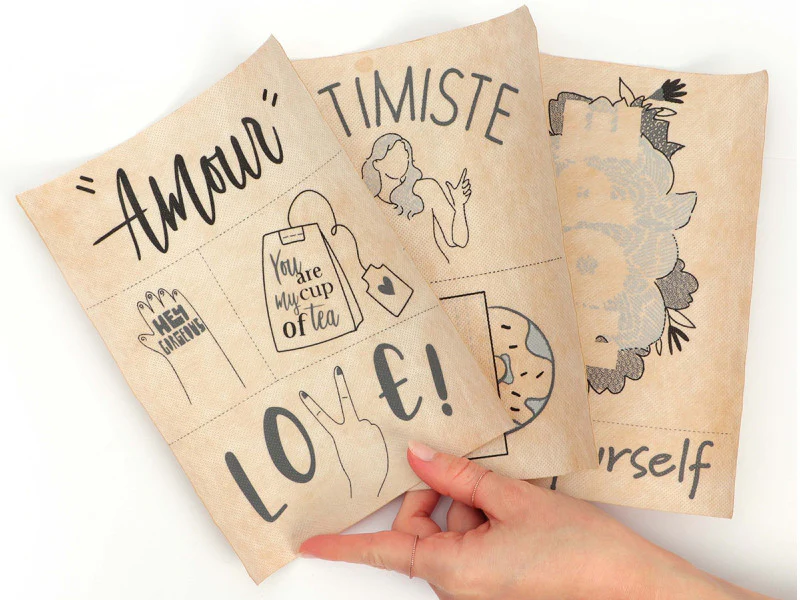 "Amour"
HEY
GORGEOUS
You
are
my cup
of tea
LOVE!
TIMISTE
urself